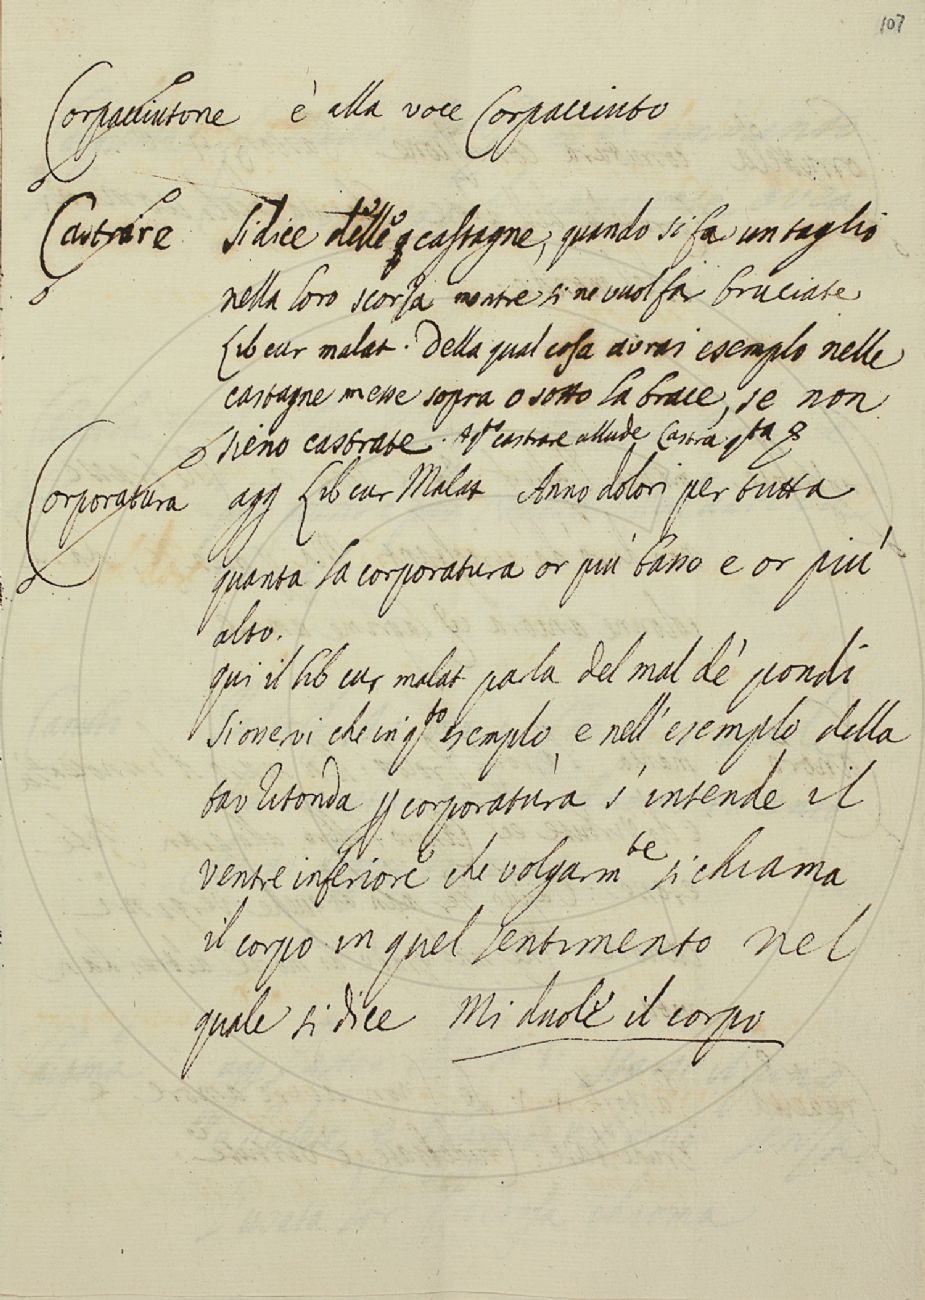 107
Corpacciutone è alla voce Corpacciuto
Castrare Si dice delle castagne, quando si fa un taglio
nella loro scorza mentre si ne vuol far bruciate
Lib cur malat. Della qual cosa avrai esemplo nelle
castagne messe sopra o sotto la brace, se non
sieno castrate. A qto castrare allude
Corporatura agg Lib cur Malat Anno dolori per tutta
quanta la corporatura or più basso e or più
alto.
qui il lib cur malat parla del mal de' pondi
si osservi che in qto esemplo, e nell'esemplo della
tav Ritonda p corporatura s'intende il
ventre inferiore che volgarmte si chiama
il corpo in quel sentimento nel
quale si dice Mi duole il corpo